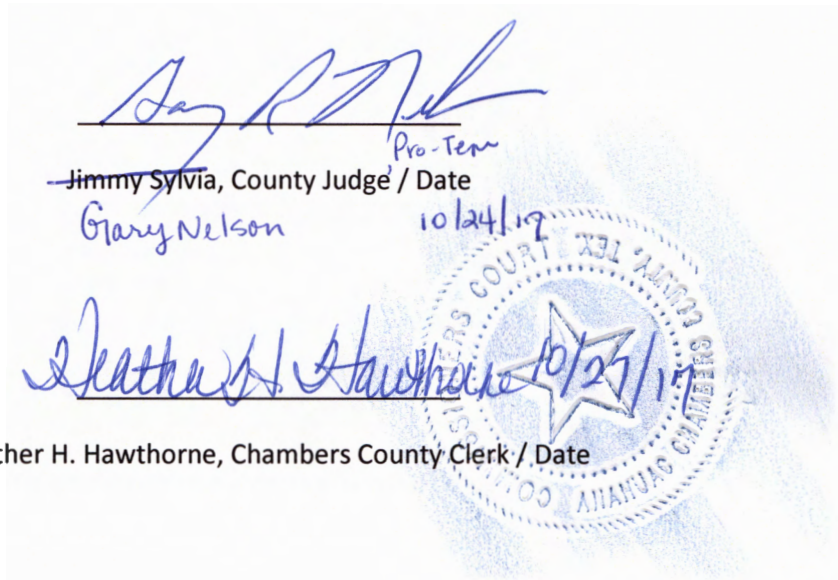 Gary R Nelson
Pro-Tem
Jimmy Sylvia, County Judge / Date
Gary Nelson 10/24/17
Heather H. Hawthorne 10/27/17
ther H. Hawthorne, Chambers County Clerk / Date
COMMISSIONERS COURT
CHAMBERS COUNTY, TEX.
ANAHUAC